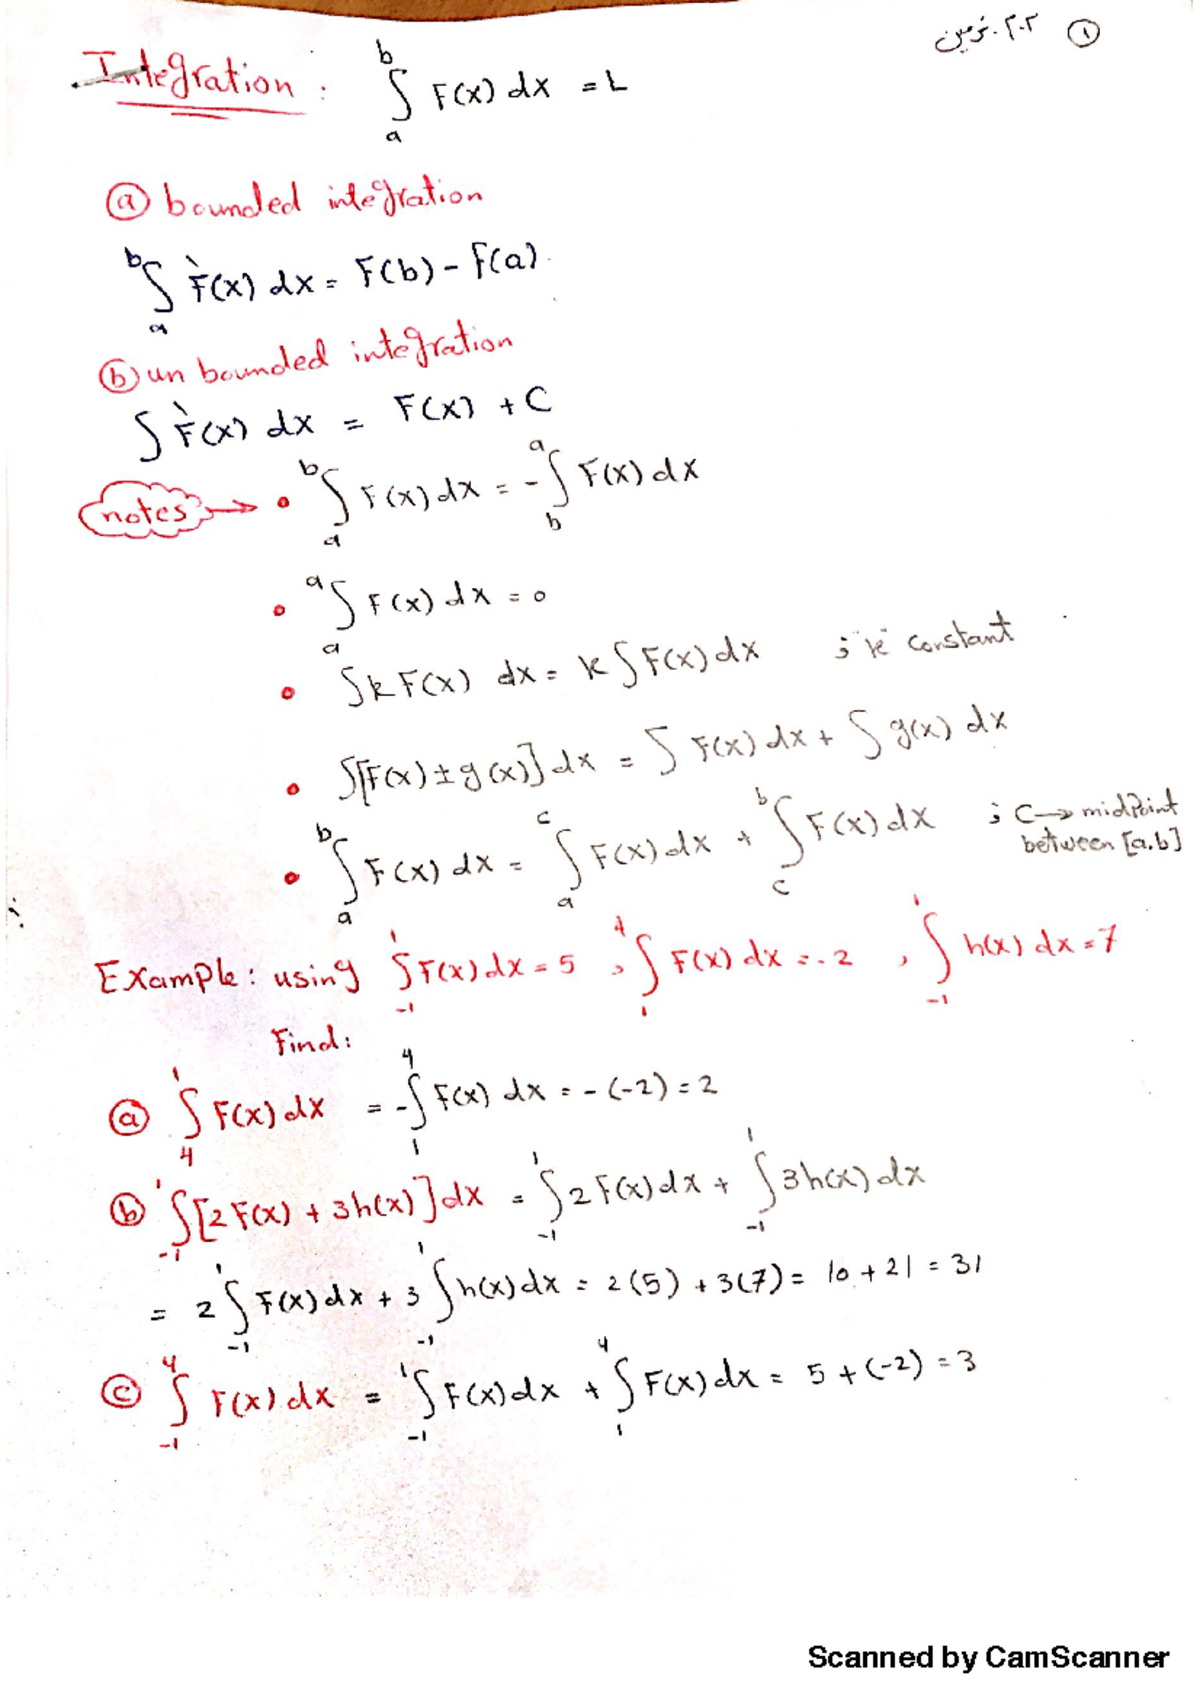 ٢٠٢ نرمين ①
Integration : ∫_a^b F(x) dx = L
ⓐ bounded integration
∫_a^b F̀(x) dx = F(b) - F(a).
ⓑ un bounded integration
∫ F̀(x) dx = F(x) + C
notes → • ∫_a^b F(x) dx = -∫_b^a F(x) dx
• ∫_a^a F(x) dx = 0
• ∫k F(x) dx = k ∫F(x) dx ; "k" constant
• ∫[F(x) ± g(x)] dx = ∫ F(x) dx + ∫ g(x) dx
• ∫_a^b F(x) dx = ∫_a^c F(x) dx + ∫_c^b F(x) dx ; C → midPoint
between [a.b]
Example: using ∫_{-1}^1 F(x) dx = 5 , ∫_1^4 F(x) dx = -2 , ∫_{-1}^1 h(x) dx = 7
Find:
ⓐ ∫_4^1 F(x) dx = -∫_1^4 F(x) dx = -(-2) = 2
ⓑ ∫_{-1}^1 [2F(x) + 3h(x)] dx = ∫_{-1}^1 2F(x) dx + ∫_{-1}^1 3h(x) dx
= 2∫_{-1}^1 F(x) dx + 3∫_{-1}^1 h(x) dx = 2(5) + 3(7) = 10 + 21 = 31
ⓒ ∫_{-1}^4 F(x) dx = ∫_{-1}^1 F(x) dx + ∫_1^4 F(x) dx = 5 + (-2) = 3
Scanned by CamScanner